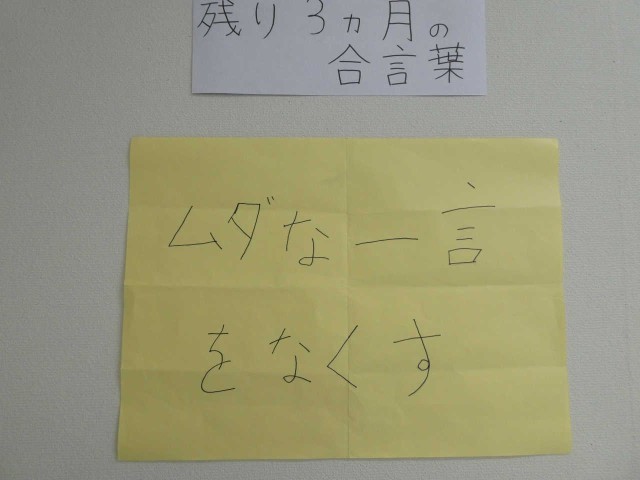 残り3ヵ月の
合言葉
ムダな一言
をなくす